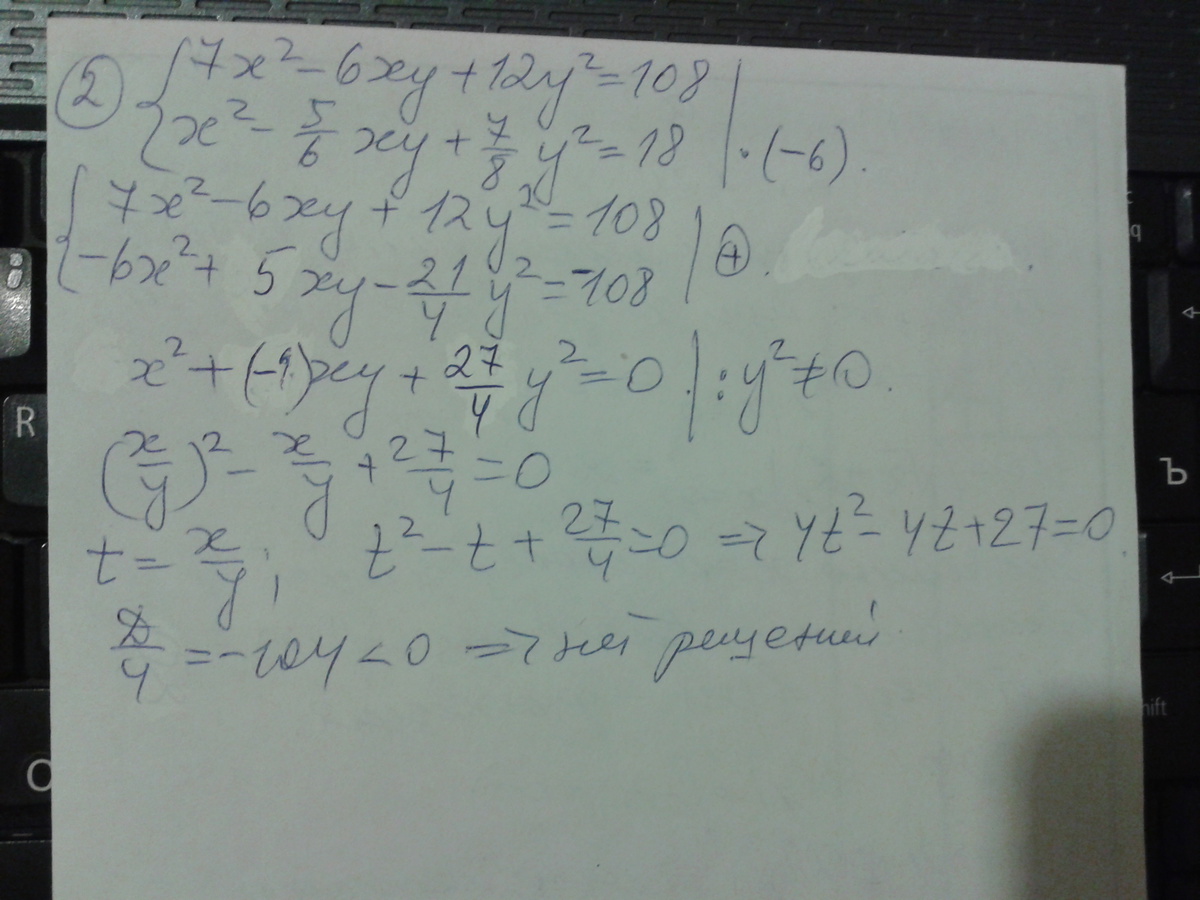 ② { 7x² - 6xy + 12y² = 108
x² - 5/6 xy + 7/8 y² = 18 | · (-6).
{ 7x² - 6xy + 12y² = 108
-6x² + 5xy - 21/4 y² = -108 | ⊕.
x² + (-1)xy + 27/4 y² = 0 | : y² ≠ 0.
(x/y)² - x/y + 27/4 = 0
t = x/y; t² - t + 27/4 = 0 => 4t² - 4t + 27 = 0.
D/4 = -104 < 0 => нет решений
R
O
q
Ъ
hift